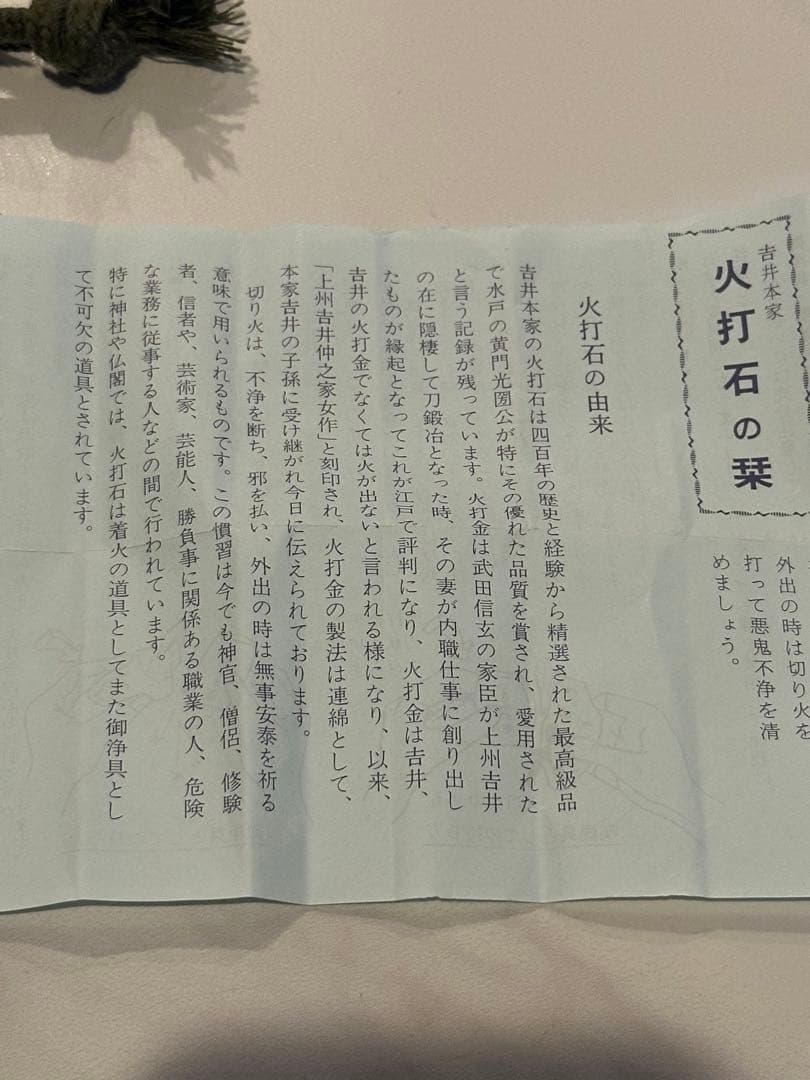 外出の時は切り火を
打って悪鬼不浄を清
めましょう。
吉井本家
火打石の栞
火打石の由来
吉井本家の火打石は四百年の歴史と経験から精選された最高級品
で水戸の黄門光圀公が特にその優れた品質を賞され、愛用された
と言う記録が残っています。火打金は武田信玄の家臣が上州吉井
の在に隠棲して刀鍛冶となった時、その妻が内職仕事に創り出し
たものが縁起となってこれが江戸で評判になり、火打金は吉井、
吉井の火打金でなくては火が出ないと言われる様になり、以来、
「上州吉井仲之家女作」と刻印され、火打金の製法は連綿として、
本家吉井の子孫に受け継がれ今日に伝えられております。
切り火は、不浄を断ち、邪を払い、外出の時は無事安泰を祈る
意味で用いられるものです。この慣習は今でも神官、僧侶、修験
者、信者や、芸術家、芸能人、勝負事に関係ある職業の人、危険
な業務に従事する人などの間で行われています。
特に神社や仏閣では、火打石は着火の道具としてまた御浄具とし
て不可欠の道具とされています。